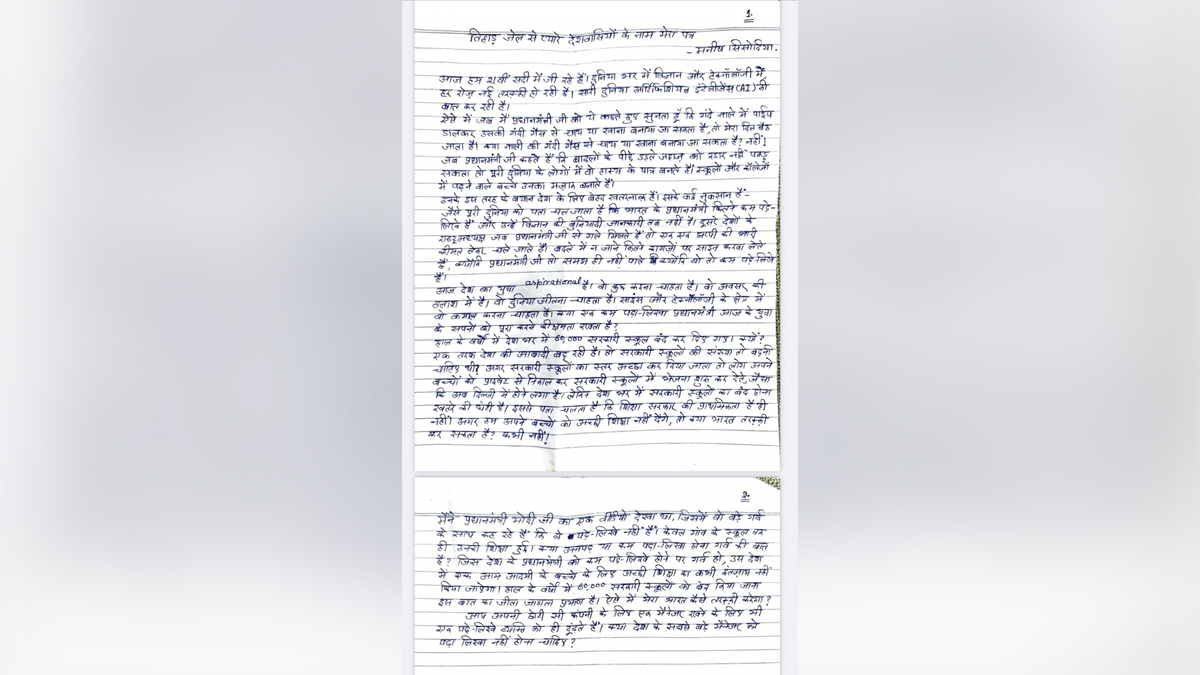 1.
तिहाड़ जेल से प्यारे देशवासियों के नाम मेरा पत्र
- मनीष सिसोदिया.
आज हम 21वीं सदी में जी रहे हैं। दुनिया भर में विज्ञान और टेक्नॉलॉजी में,
हर रोज़ नई तरक़्क़ी हो रही है। सारी दुनिया आर्टिफिशियल इंटेलीजेंस (AI) की
बात कर रही है।
ऐसे में जब मैं प्रधानमंत्री जी को ये कहते हुए सुनता हूँ कि गंदे नाले में पाईप
डालकर उसकी गंदी गैस से चाय या खाना बनाया जा सकता है, तो मेरा दिल बैठ
जाता है। क्या नाली की गंदी गैस से चाय या खाना बनाया जा सकता है? नहीं।
जब प्रधानमंत्री जी कहते हैं कि बादलों के पीछे उड़ते जहाज़ को रडार नहीं पकड़
सकता तो पूरी दुनिया के लोगों में वो हास्य के पात्र बनते हैं। स्कूलों और कॉलेजों
में पढ़ने वाले बच्चे उनका मज़ाक़ बनाते हैं।
उनके इस तरह के बयान देश के लिए बेहद ख़तरनाक हैं। इसके कई नुकसान हैं-
जैसे पूरी दुनिया को पता चल जाता है कि भारत के प्रधानमंत्री कितने कम पढ़े-
लिखे हैं और उन्हें विज्ञान की बुनियादी जानकारी तक नहीं है। दूसरे देशों के
राष्ट्राध्यक्ष जब प्रधानमंत्री जी से गले मिलते हैं तो एक एक झप्पी की भारी
कीमत लेकर चले जाते हैं। बदले में न जाने कितने काग़ज़ों पर साइन करवा लेते
हैं, क्योंकि प्रधानमंत्री जी तो समझ ही नहीं पाते क्योंकि वो तो कम पढ़े-लिखे
हैं।
आज देश का युवा aspirational है। वो कुछ करना चाहता है। वो अवसर की
तलाश में है। वो दुनिया जीतना चाहता है। साइंस और टेक्नॉलॉजी के क्षेत्र में
वो कमाल करना चाहता है। क्या एक कम पढ़ा-लिखा प्रधानमंत्री आज के युवा
के सपनों को पूरा करने की क्षमता रखता है?
हाल के वर्षों में देश भर में 60,000 सरकारी स्कूल बंद कर दिए गए। क्यों?
एक तरफ देश की आबादी बढ़ रही है। तो सरकारी स्कूलों की संख्या तो बढ़नी
चाहिए थी? अगर सरकारी स्कूलों का स्तर अच्छा कर दिया जाता तो लोग अपने
बच्चों को प्राइवेट से निकाल कर सरकारी स्कूलों में भेजना शुरू कर देते, जैसा
कि अब दिल्ली में होने लगा है। लेकिन देश भर में सरकारी स्कूलों का बंद होना
ख़तरे की घंटी है। इससे पता चलता है कि शिक्षा सरकार की प्राथमिकता है ही
नहीं। अगर हम अपने बच्चों को अच्छी शिक्षा नहीं देंगे, तो क्या भारत तरक़्क़ी
कर सकता है? कभी नहीं!
2.
मैंने प्रधानमंत्री मोदी जी का एक वीडियो देखा था, जिसमें वो बड़े गर्व
के साथ कह रहे हैं कि वो पढ़े-लिखे नहीं हैं। केवल गांव के स्कूल तक
ही उनकी शिक्षा हुई। क्या अनपढ़ या कम पढ़ा-लिखा होना गर्व की बात
है? जिस देश के प्रधानमंत्री को कम पढ़े-लिखे होने पर गर्व हो, उस देश
में एक आम आदमी के बच्चे के लिए अच्छी शिक्षा का कभी इंतज़ाम नहीं
किया जाएगा। हाल के वर्षों में 60,000 सरकारी स्कूलों को बंद किया जाना
इस बात का जीता जागता प्रमाण है। ऐसे में मेरा भारत कैसे तरक़्क़ी करेगा?
आप अपनी छोटी सी कंपनी के लिए एक मैनेजर रखने के लिए भी
एक पढ़े-लिखे व्यक्ति को ही ढूंढते हैं। क्या देश के सबसे बड़े मैनेजर को
पढ़ा लिखा नहीं होना चाहिए?